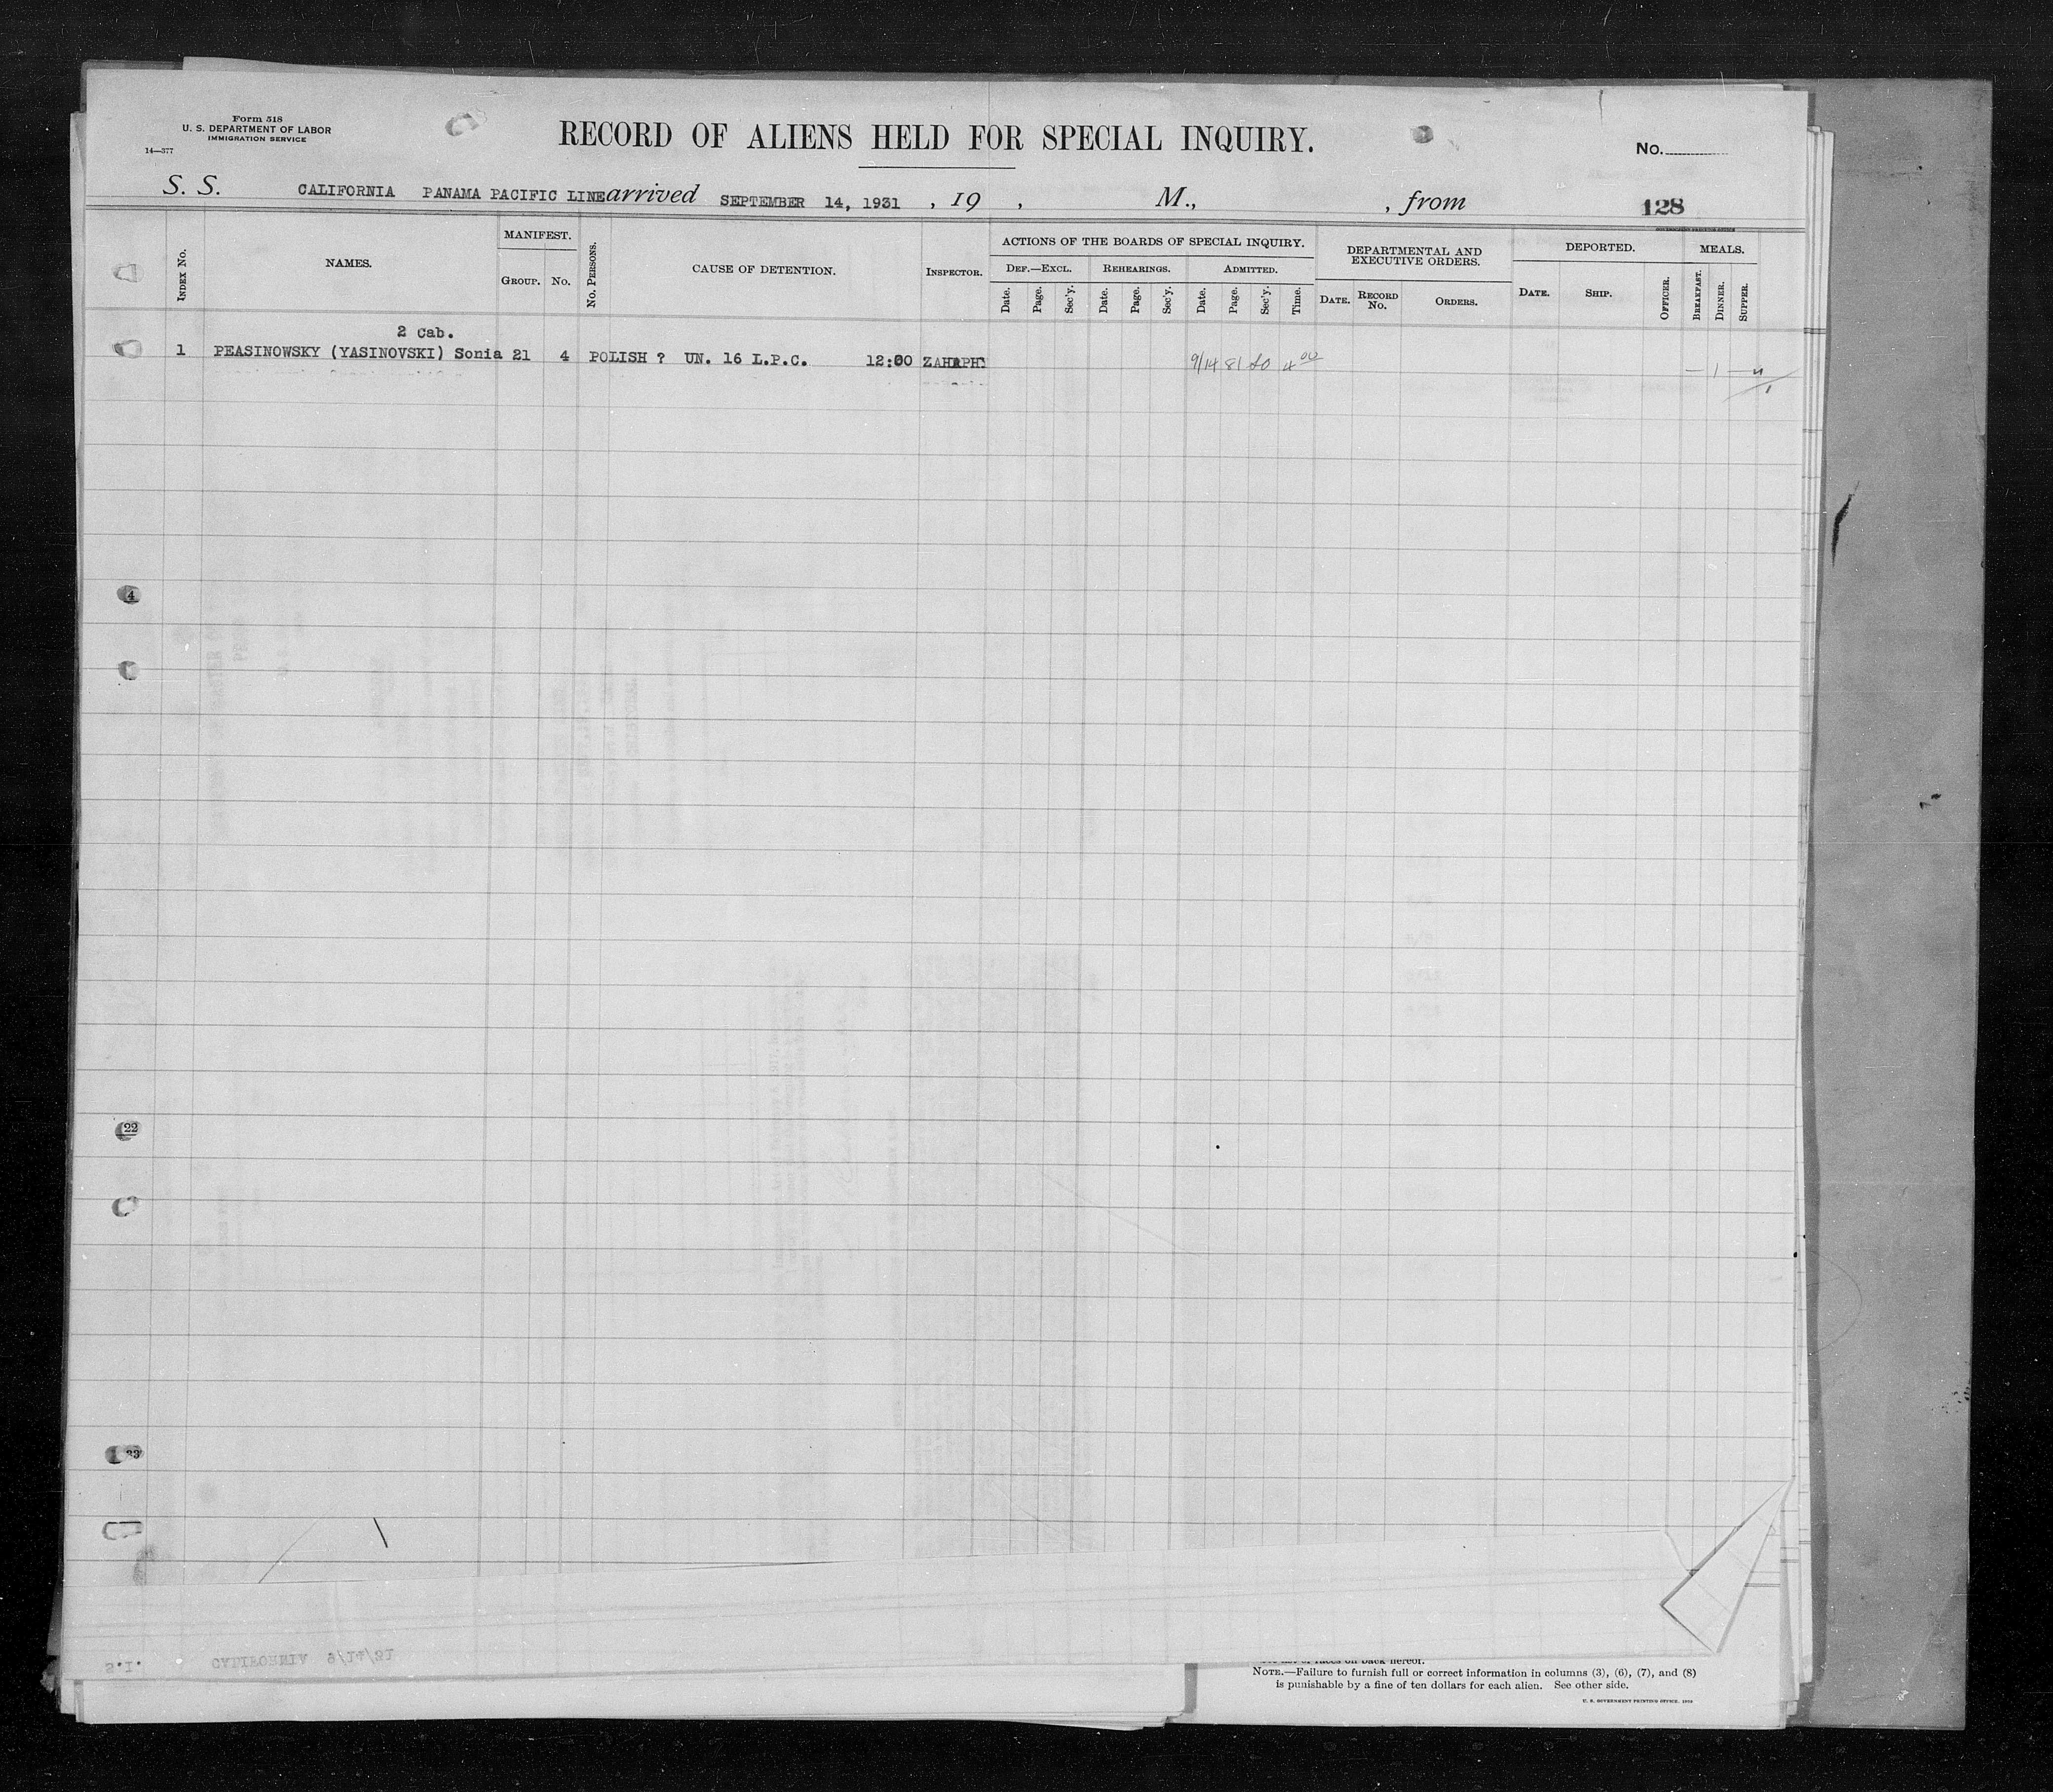 Form 518
U. S. DEPARTMENT OF LABOR
IMMIGRATION SERVICE
14—377
RECORD OF ALIENS HELD FOR SPECIAL INQUIRY.
No.
S. S. CALIFORNIA PANAMA PACIFIC LINE arrived SEPTEMBER 14, 1931 , 19 , M., , from
128
INDEX No.
NAMES.
MANIFEST.
GROUP. No.
No. PERSONS.
CAUSE OF DETENTION.
INSPECTOR.
ACTIONS OF THE BOARDS OF SPECIAL INQUIRY.
DEF.—EXCL. REHEARINGS. ADMITTED.
Date. Page. Sec'y. Date. Page. Sec'y. Date. Page. Sec'y. Time.
DEPARTMENTAL AND
EXECUTIVE ORDERS.
DATE. RECORD No. ORDERS.
DEPORTED.
DATE. SHIP. OFFICER.
MEALS.
BREAKFAST. DINNER. SUPPER.
2 Cab.
1 PEASINOWSKY (YASINOVSKI) Sonia 21 4 POLISH ? UN. 16 L.P.C. 12:00 9/14 81 4 00 — 1 —
4
22
33
S.I. CALIFORNIA 9/14/31
NOTE.—Failure to furnish full or correct information in columns (3), (6), (7), and (8)
is punishable by a fine of ten dollars for each alien. See other side.
U. S. GOVERNMENT PRINTING OFFICE.